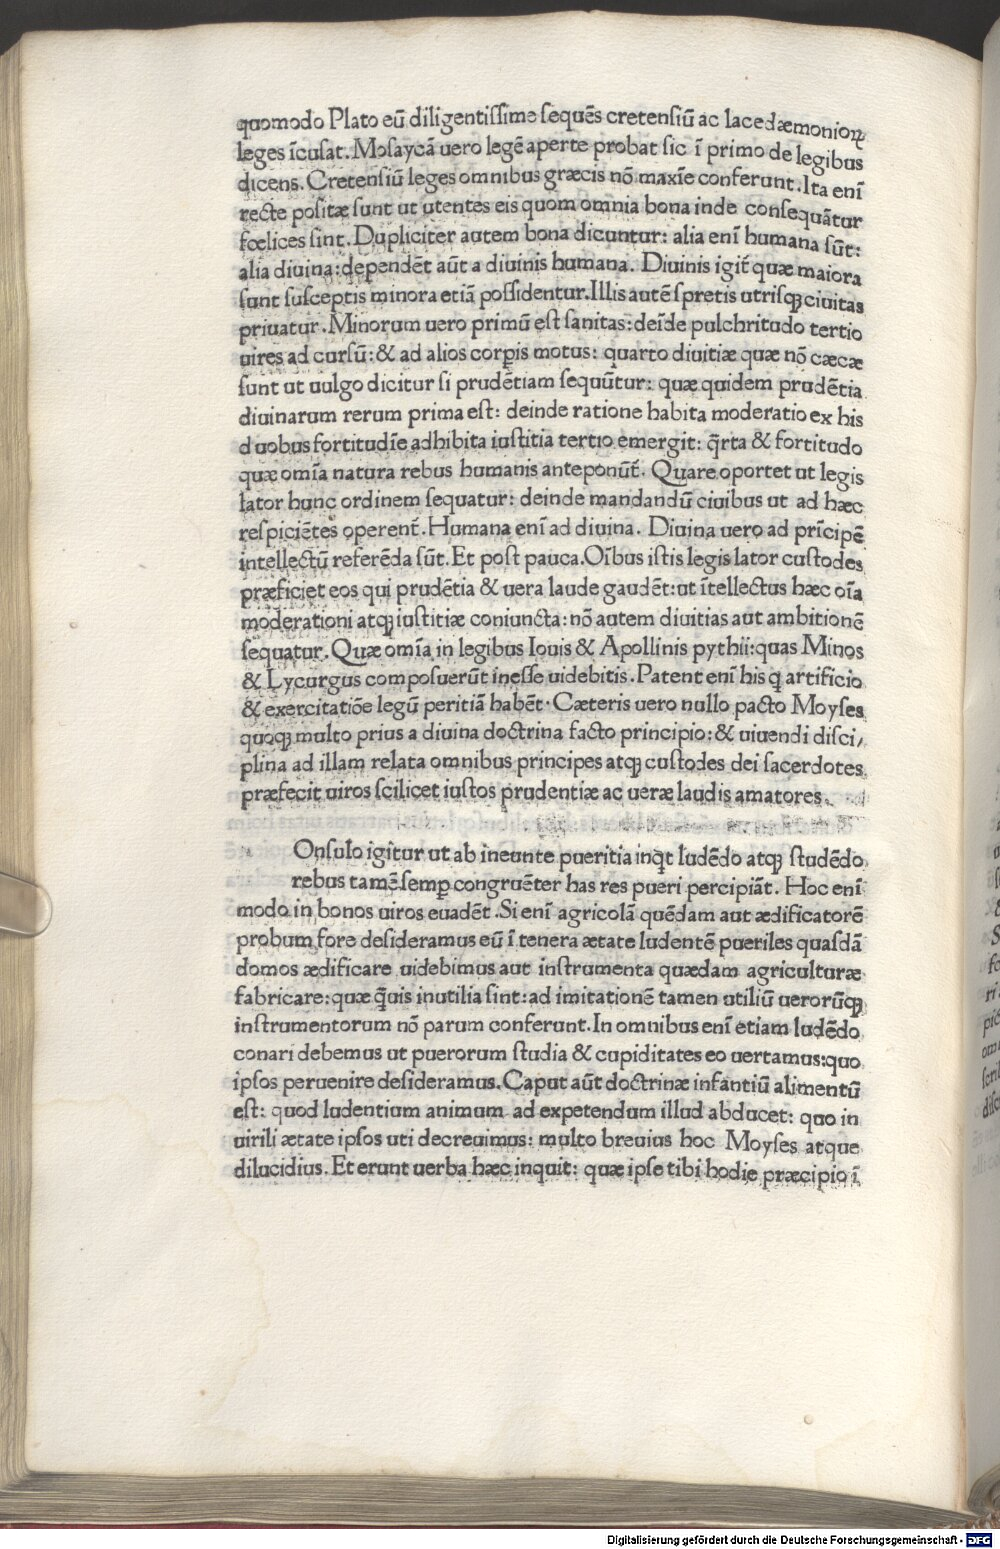 quomodo Plato eū diligentissime sequēs cretensiū ac lacedæmonioꝝ
leges īcusat. Mosaycā uero legē aperte probat sic ī primo de legibus
dicens. Cretensiū leges omnibus græcis nō maxīe conferunt. Ita enī
recte positæ sunt ut utentes eis quom omnia bona inde consequātur
fœlices sint. Dupliciter autem bona dicuntur: alia enī humana sūt:
alia diuina: dependēt aūt a diuinis humana. Diuinis igit̄ quæ maiora
sunt susceptis minora etiā possidentur. Illis autē spretis utrisqꝫ ciuitas
priuatur. Minorum uero primū est sanitas: deīde pulchritudo tertio
uires ad cursū: & ad alios corꝑis motus: quarto diuitiæ quæ nō cæcæ
sunt ut uulgo dicitur si prudētiam sequūtur: quæ quidem prudētia
diuinarum rerum prima est: deinde ratione habita moderatio ex his
duobus fortitudīe adhibita iustitia tertio emergit: q̄rta & fortitudo
quæ omīa natura rebus humanis anteponūt̄. Quare oportet ut legis
lator hunc ordinem sequatur: deinde mandandū ciuibus ut ad hæc
respiciētes operent̄. Humana enī ad diuina. Diuina uero ad prīcipē
intellectū referēda sūt. Et post pauca. Oībus istis legis lator custodes
præficiet eos qui prudētia & uera laude gaudēt: ut ītellectus hæc oīa
moderationi atqꝫ iustitiæ coniuncta: nō autem diuitias aut ambitionē
sequatur. Quæ omīa in legibus Iouis & Apollinis pythii: quas Minos
& Lycurgus composuerūt inesse uidebitis. Patent enī his q̄ artificio
& exercitatiōe legū peritiā habēt. Cæteris uero nullo pacto Moyses
quoqꝫ multo prius a diuina doctrina facto principio: & uiuendi disci/
plina ad illam relata omnibus principes atqꝫ custodes dei sacerdotes
præfecit uiros scilicet iustos prudentiæ ac ueræ laudis amatores.
Onsulo igitur ut ab ineunte pueritia inq̄t ludēdo atqꝫ studēdo
rebus tamē semꝑ congruēter has res pueri percipiāt. Hoc enī
modo in bonos uiros euadēt. Si enī agricolā quēdam aut ædificatorē
probum fore desideramus eū ī tenera ætate ludentē pueriles quasdā
domos ædificare uidebimus aut instrumenta quædam agriculturæ
fabricare: quæ q̄uis inutilia sint: ad imitationē tamen utiliū uerorūqꝫ
instrumentorum nō parum conferunt. In omnibus enī etiam ludēdo
conari debemus ut puerorum studia & cupiditates eo uertamus: quo
ipsos peruenire desideramus. Caput aūt doctrinæ infantiū alimentū
est: quod ludentium animum ad expetendum illud abducet: quo in
uirili ætate ipsos uti decreuimus: multo breuius hoc Moyses atque
dilucidius. Et erunt uerba hæc inquit: quæ ipse tibi hodie præcipio ī
Digitalisierung gefördert durch die Deutsche Forschungsgemeinschaft - DFG